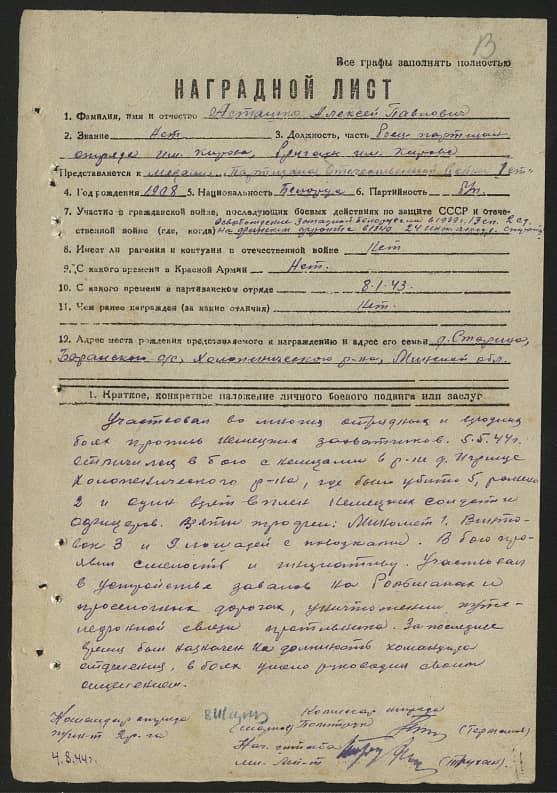 13
Все графы заполнять полностью
НАГРАДНОЙ ЛИСТ
1. Фамилия, имя и отчество Асташко Алексей Павлович
2. Звание Нет 3. Должность, часть Боец партизан
отряда им. Кирова, Бригады им. Кирова
Представляется к медали "Партизана Отечественной Войны
4. Год рождения 1908 5. Национальность Белорус 6. Партийность б/п
7. Участие в гражданской войне, последующих боевых действиях по защите СССР и отече-
ственной войне (где, когда) Освобождение Западной Белоруссии в 1939г.
8. Имеет ли ранения и контузии в отечественной войне Нет
9. С какого времени в Красной Армии Нет.
10. С какого времени в партизанском отряде 8.1.43.
11. Чем ранее награжден (за какие отличия) Нет.
12. Адрес места рождения представляемого к награждению и адрес его семьи д. Старица,
с/с, Холопенического р-на, Минской обл.
1. Краткое, конкретное изложение личного боевого подвига или заслуг
Участвовал во многих отрядных и
боях против немецких захватчиков. 5.5.44г.
отличился в бою с немцами в р-не д.
Холопенического р-на, где было убито 5, ранено
2 и один взят в плен немецких солдат и
офицеров. Взяты трофеи: Миномет 1, Винто-
вок 3 и 9 лошадей с повозками. В бою про-
явил смелость и инициативу. Участвовал
в устройстве завалов на и
проселочных дорогах, уничтожении
связи противника. За последнее
время был назначен на должность командира
отделения, в боях умело руководил своим
отделением.
Командир отряда Комиссар отряда
Политрук (Германия)
Нач. штаба
4.8.44г. мл. лей-т (Трухан.)